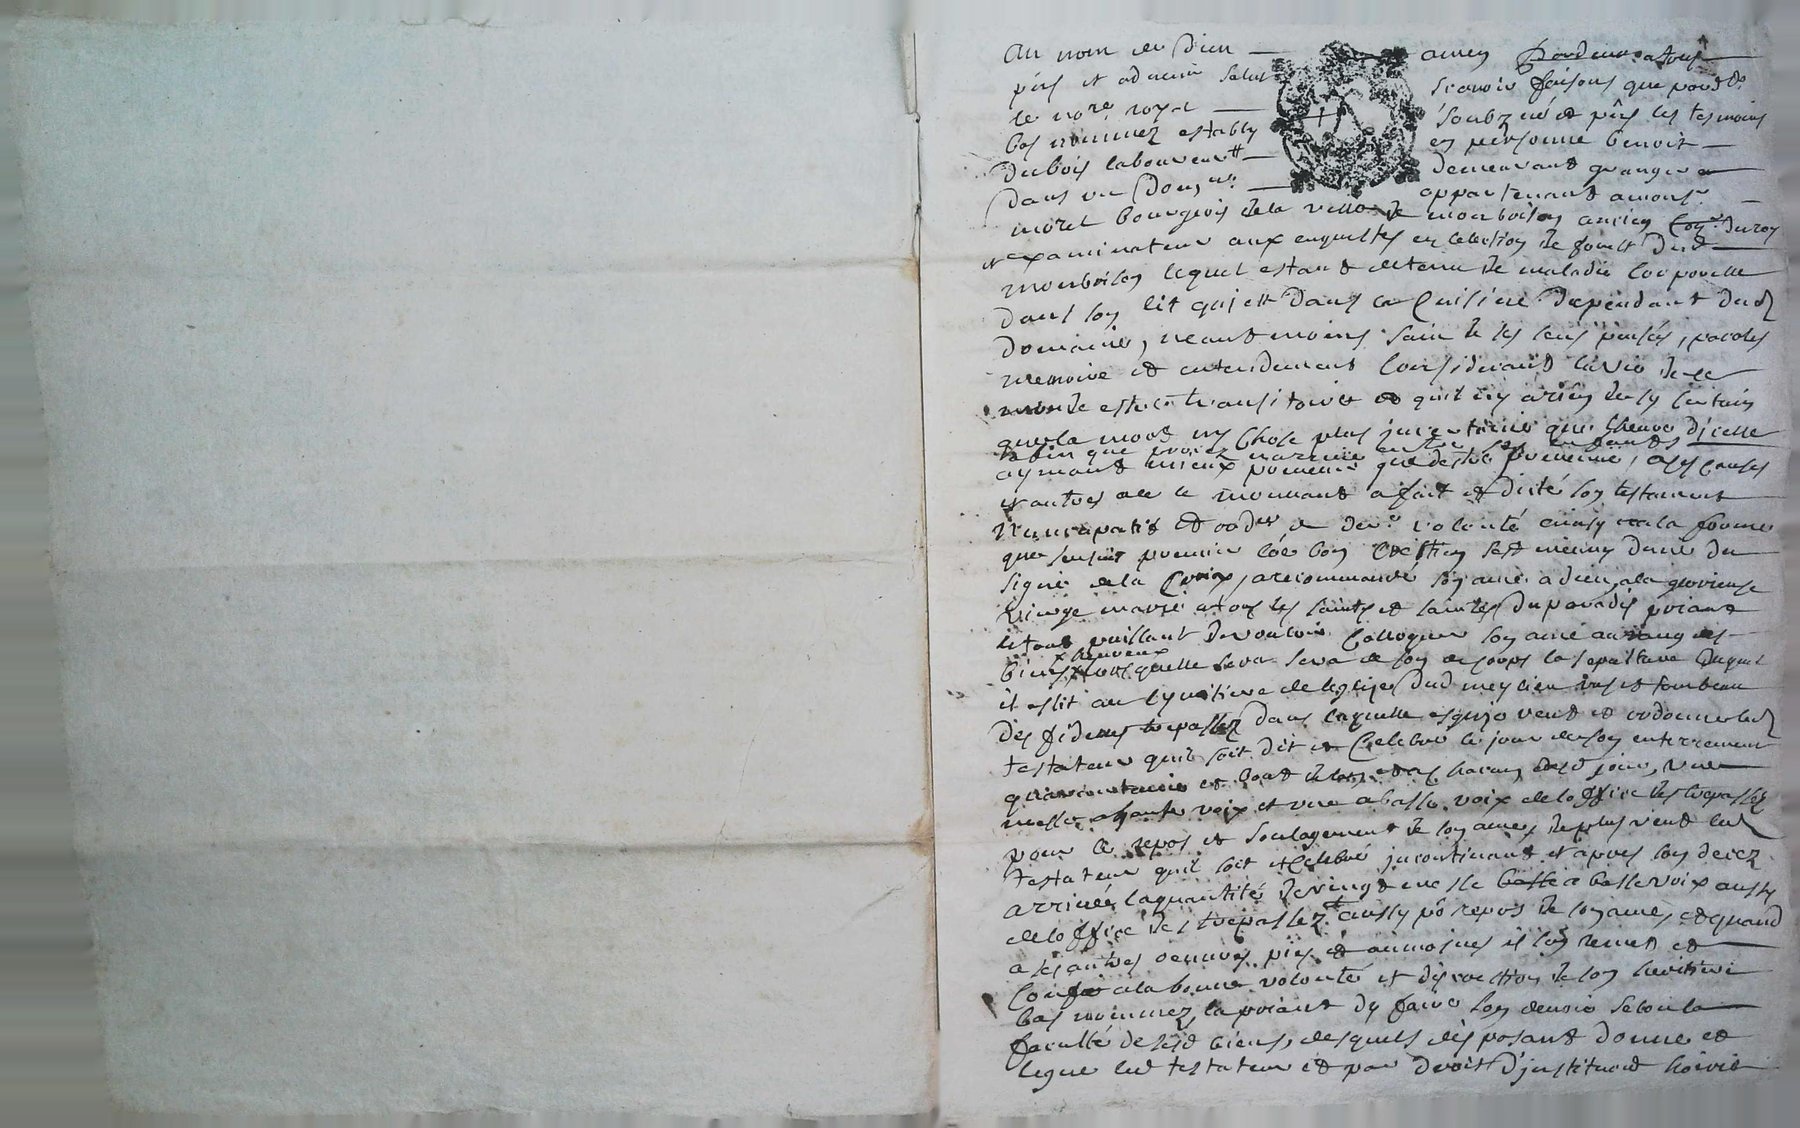 Au nom de Dieu amen Pardevant a tous
pris et advenir salut scavoir faisons que pard.
le nore. royal soubzné et pñs les tesmoins
bas nommez estably en personne benoit
dubois laboureur demeurant granger
dans un dom.ne appartenant a mons.r
moret bourgeois de la ville de monbrison ancien con.er du roy
et examinateur aux enquestes en lelection de forest dud
monbrison lequel estant detenu de maladie corporelle
dans son lit qui est dans la cuisine dependant dud
domaine, neantmoins sain de ses sens pensés, paroles
memoire et entendement considerant la vie de ce
monde estre transitoire et quil ny a rien de sy certain
que la mort ny chose plus incertaine que lheure dicelle
affin que procez narrive entre ses enfants,
aymant mieux prevenir que destre prevenu, a ses causes
et autres a le mouvant a fait et dicté son testament
nuncupatif et ord.er de der.e volonté ainsy et a la forme
que sensuit premier côe bon crestien sest muny du
signe de la Croix, a recommandé son ame a dieu, a la glorieuse
vierge marie a tous les saints et saintes du paradis priant
le tout puissant de vouloir colloquer son ame au rang des
bien heureux
lors quelle sera sera de son corps la sepulture duquel
il eslit au cymitiere de leglise dud meylieu vas et tombeau
des fidelles trepassez dans laquelle esglise veut et ordonne led
testateur quil soit dit et celebré le jour de son enterrement
quarantaine et bout de lan et a chacun desd jour, une
messe a haute voix et une a basse voix de loffice des trepassez
pour le repos et soulagement de son ame, de plus veut led
testateur quil soit celebré incontinant et apres son decez
arrivé, la quantité de vingt messe basse a basse voix aussy
de loffice des trepassez aussy pô repos de son ame, et quand
a ses autres oeuvres pies et aumosnes il sen remet et
confie a la bonne volonté et discretion de son heritiere
bas nommez, la priant dy faire son devoir selon la
faculté de sesd biens, desquels disposant donne et
legue led testateur et par droit dinstitution hoirie